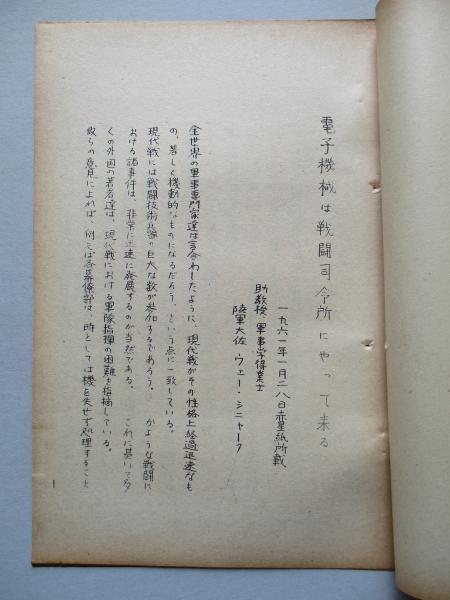 電子機械は戦闘司令所にやって来る
一九六一年一月二八日赤星紙所載
助教授 軍事学得業士
陸軍大佐・ヴェー・シニャーク
全世界の軍事専門家達は言合わしたように、現代戦がその性格上経過迅速なも
の、著しく機動的なものになるだろう、という点に一致している。
現代戦には戦闘技術兵器の巨大な数が参加するであろう。 かような戦闘に
おける諸事件は、非常に迅速に発展するのが当然である。 これに基いて多
くの外国の著者達は、現代戦における軍隊指揮の困難を指摘している。
彼らの意見によれば、例えば各幕僚部は、時としては機を失せず処理すること
1